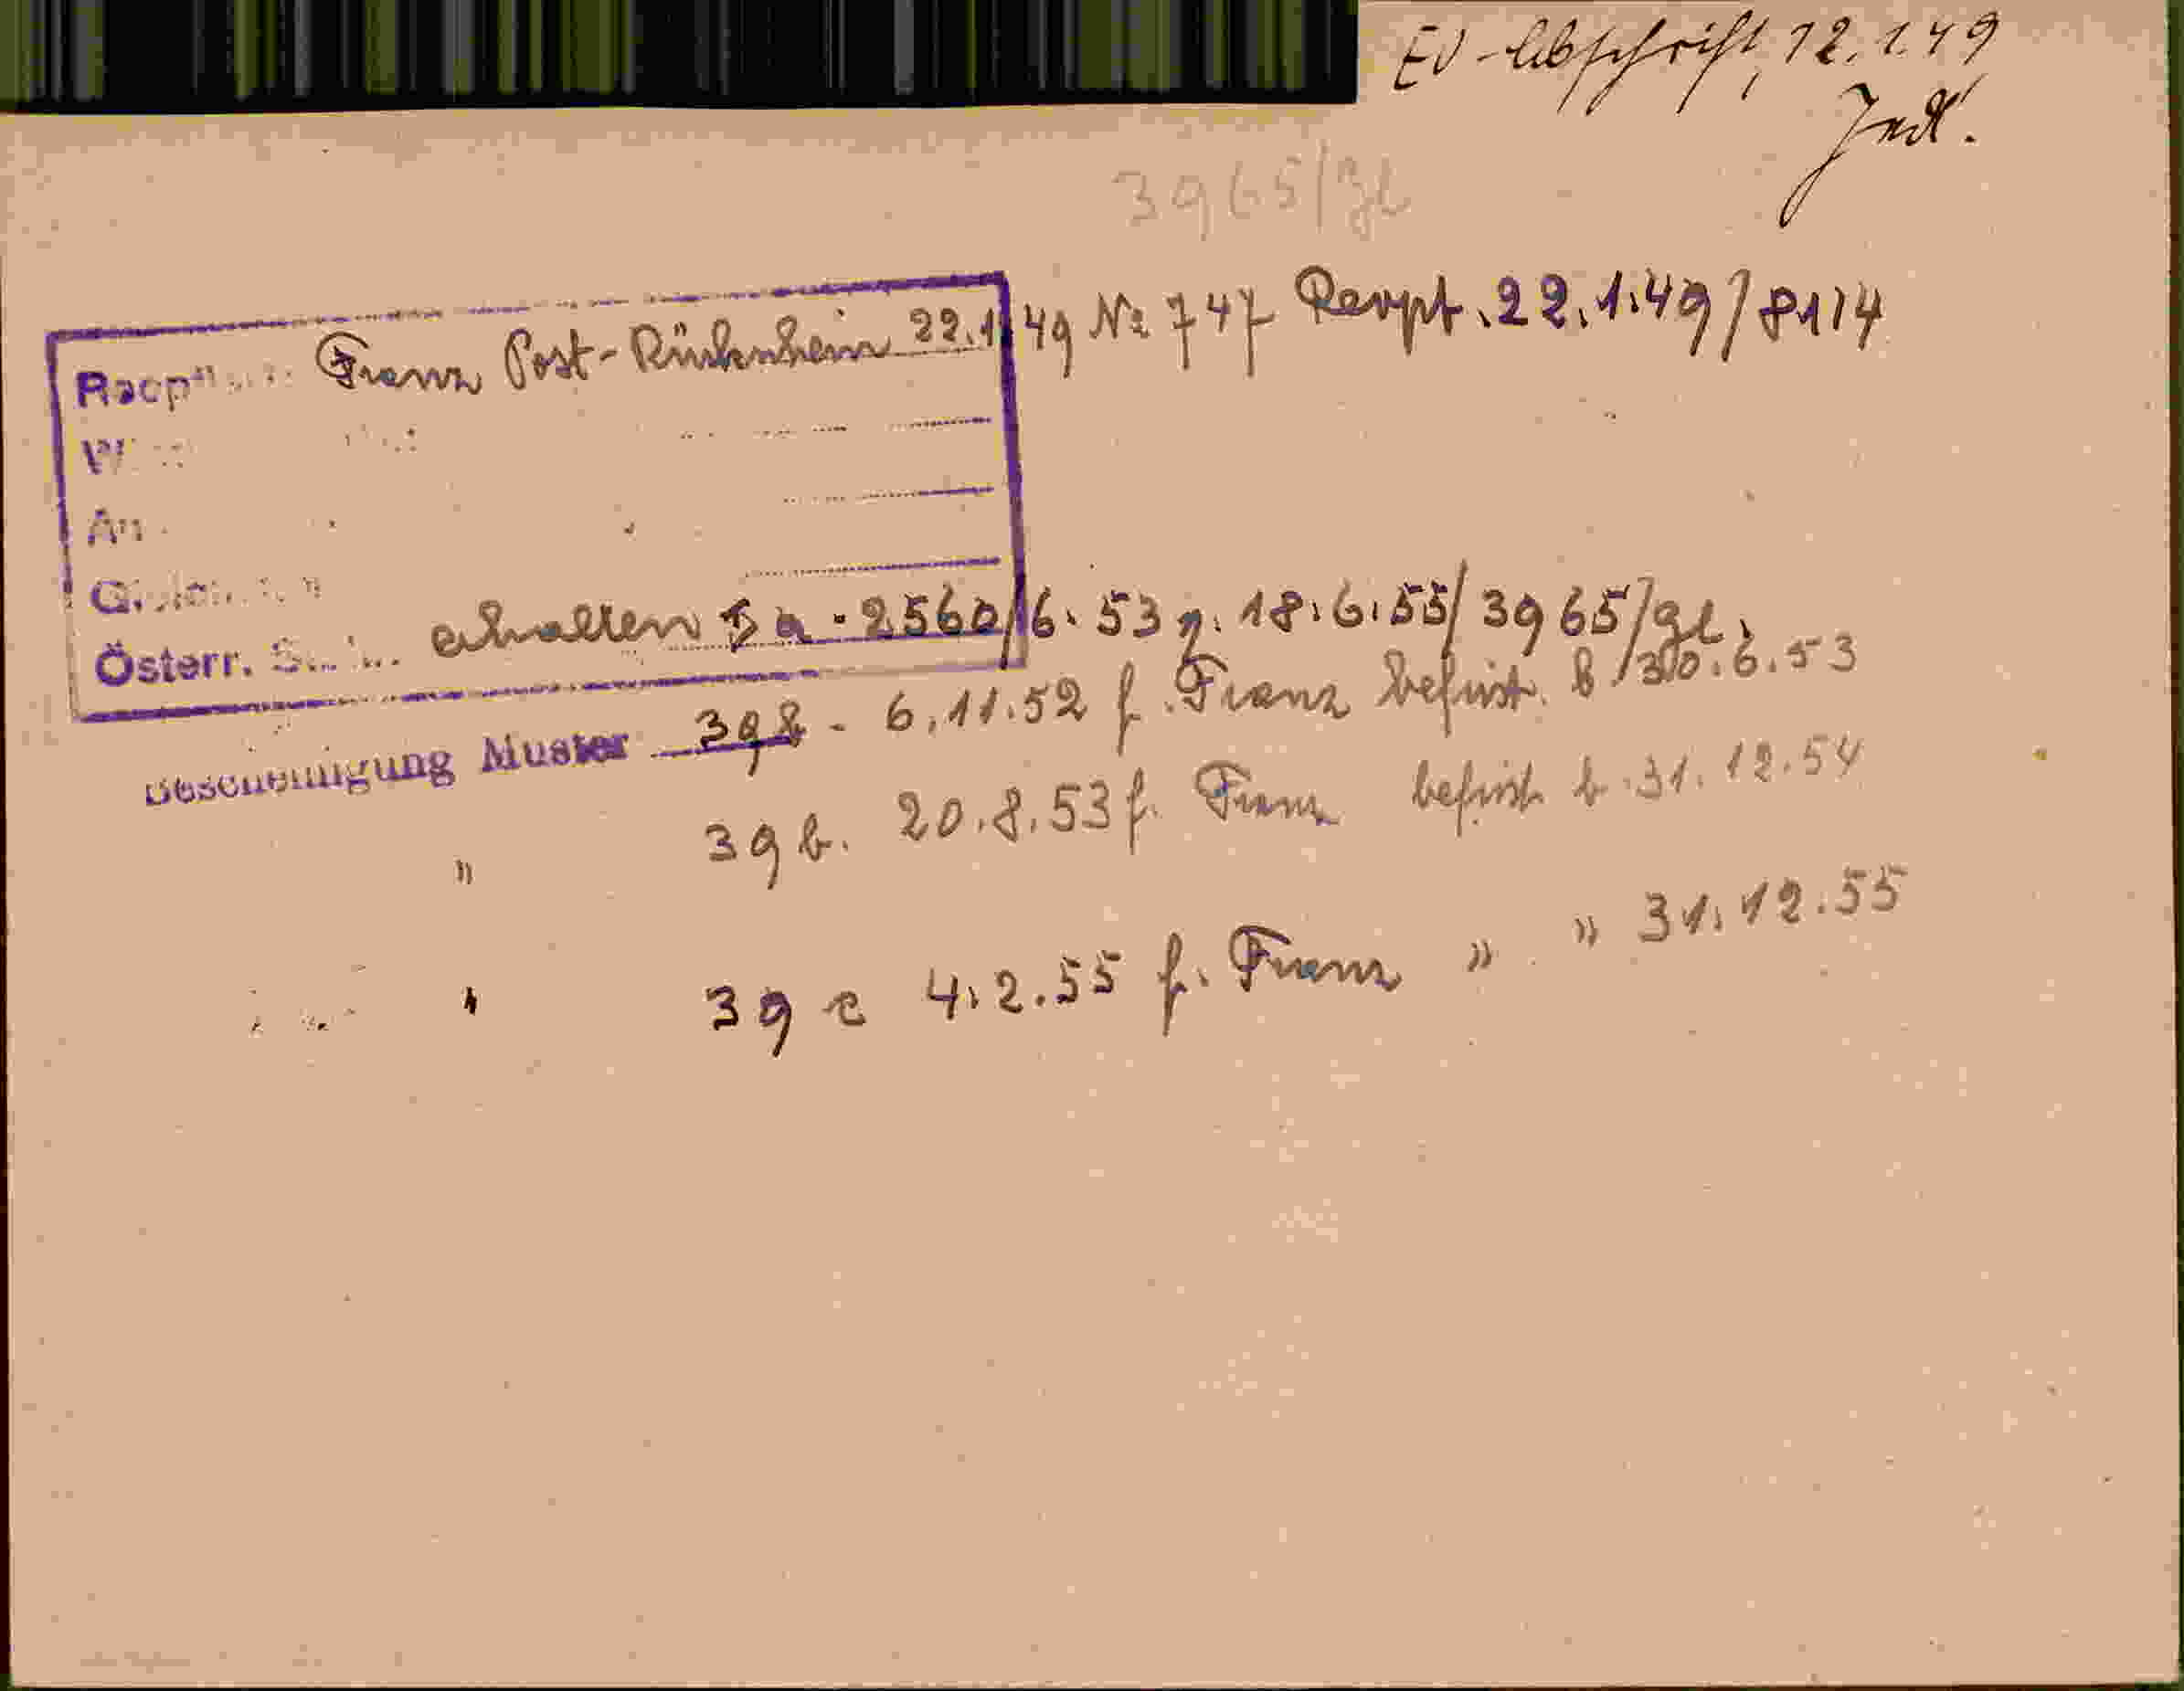 EV-Abschrift, 12.1.49
3965/gl
Franz Post-Rückschein 22.1.49 № 747 Rezept. 22.1.49/8114
Österr. erhalten 2560/6.53 z. 18.6.55/3965/gl.
Bescheinigung Muster 39 - 6.11.52 f. Franz befrist. b 30.6.53
" 39 b. 20.8.53 f. Franz befrist. b. 31.12.54
" 39 c 4.2.55 f. Franz " " 31.12.55